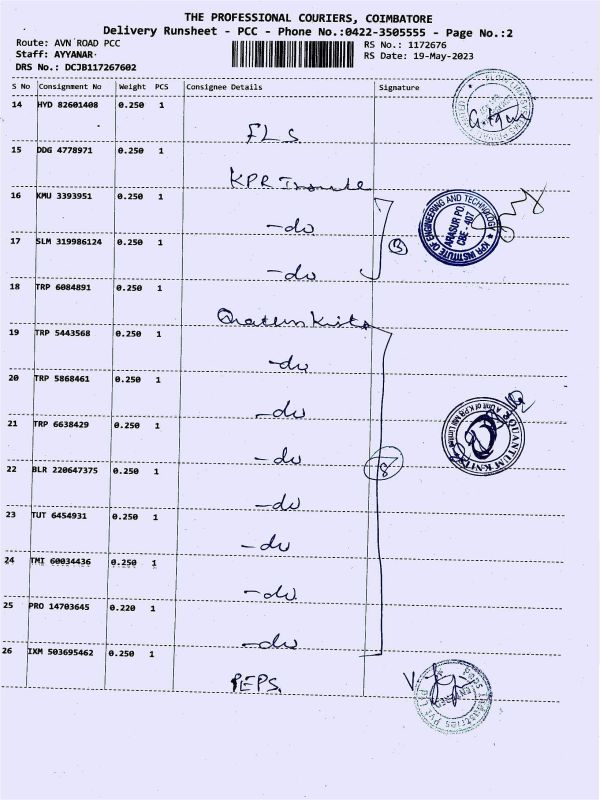 THE PROFESSIONAL COURIERS, COIMBATORE
Delivery Runsheet - PCC - Phone No.:0422-3505555 - Page No.:2
Route: AVN ROAD PCC
RS No.: 1172676
Staff: AYYANAR
RS Date: 19-May-2023
DRS No.: DCJB117267602
S No Consignment No Weight PCS Consignee Details Signature
14 HYD 82601408 0.250 1
FLS
15 DDG 4778971 0.250 1
KPR
16 KMU 3393951 0.250 1
-do
17 SLM 319986124 0.250 1
-do
18 TRP 6084891 0.250 1
Quantum Knits
19 TRP 5443568 0.250 1
-do
20 TRP 5868461 0.250 1
-do
21 TRP 6638429 0.250 1
-do
22 BLR 220647375 0.250 1
-do
23 TUT 6454931 0.250 1
-do
24 TMI 60034436 0.250 1
-do
25 PRO 14703645 0.220 1
-do
26 IXM 503695462 0.250 1
PEPS
3
8
KPR INSTITUTE OF ENGINEERING AND TECHNOLOGY
ARASUR PO.
CBE - 407
QUANTUM KNITS
A Unit of K.P.R Mill Limited
Peps Industries Pvt Ltd